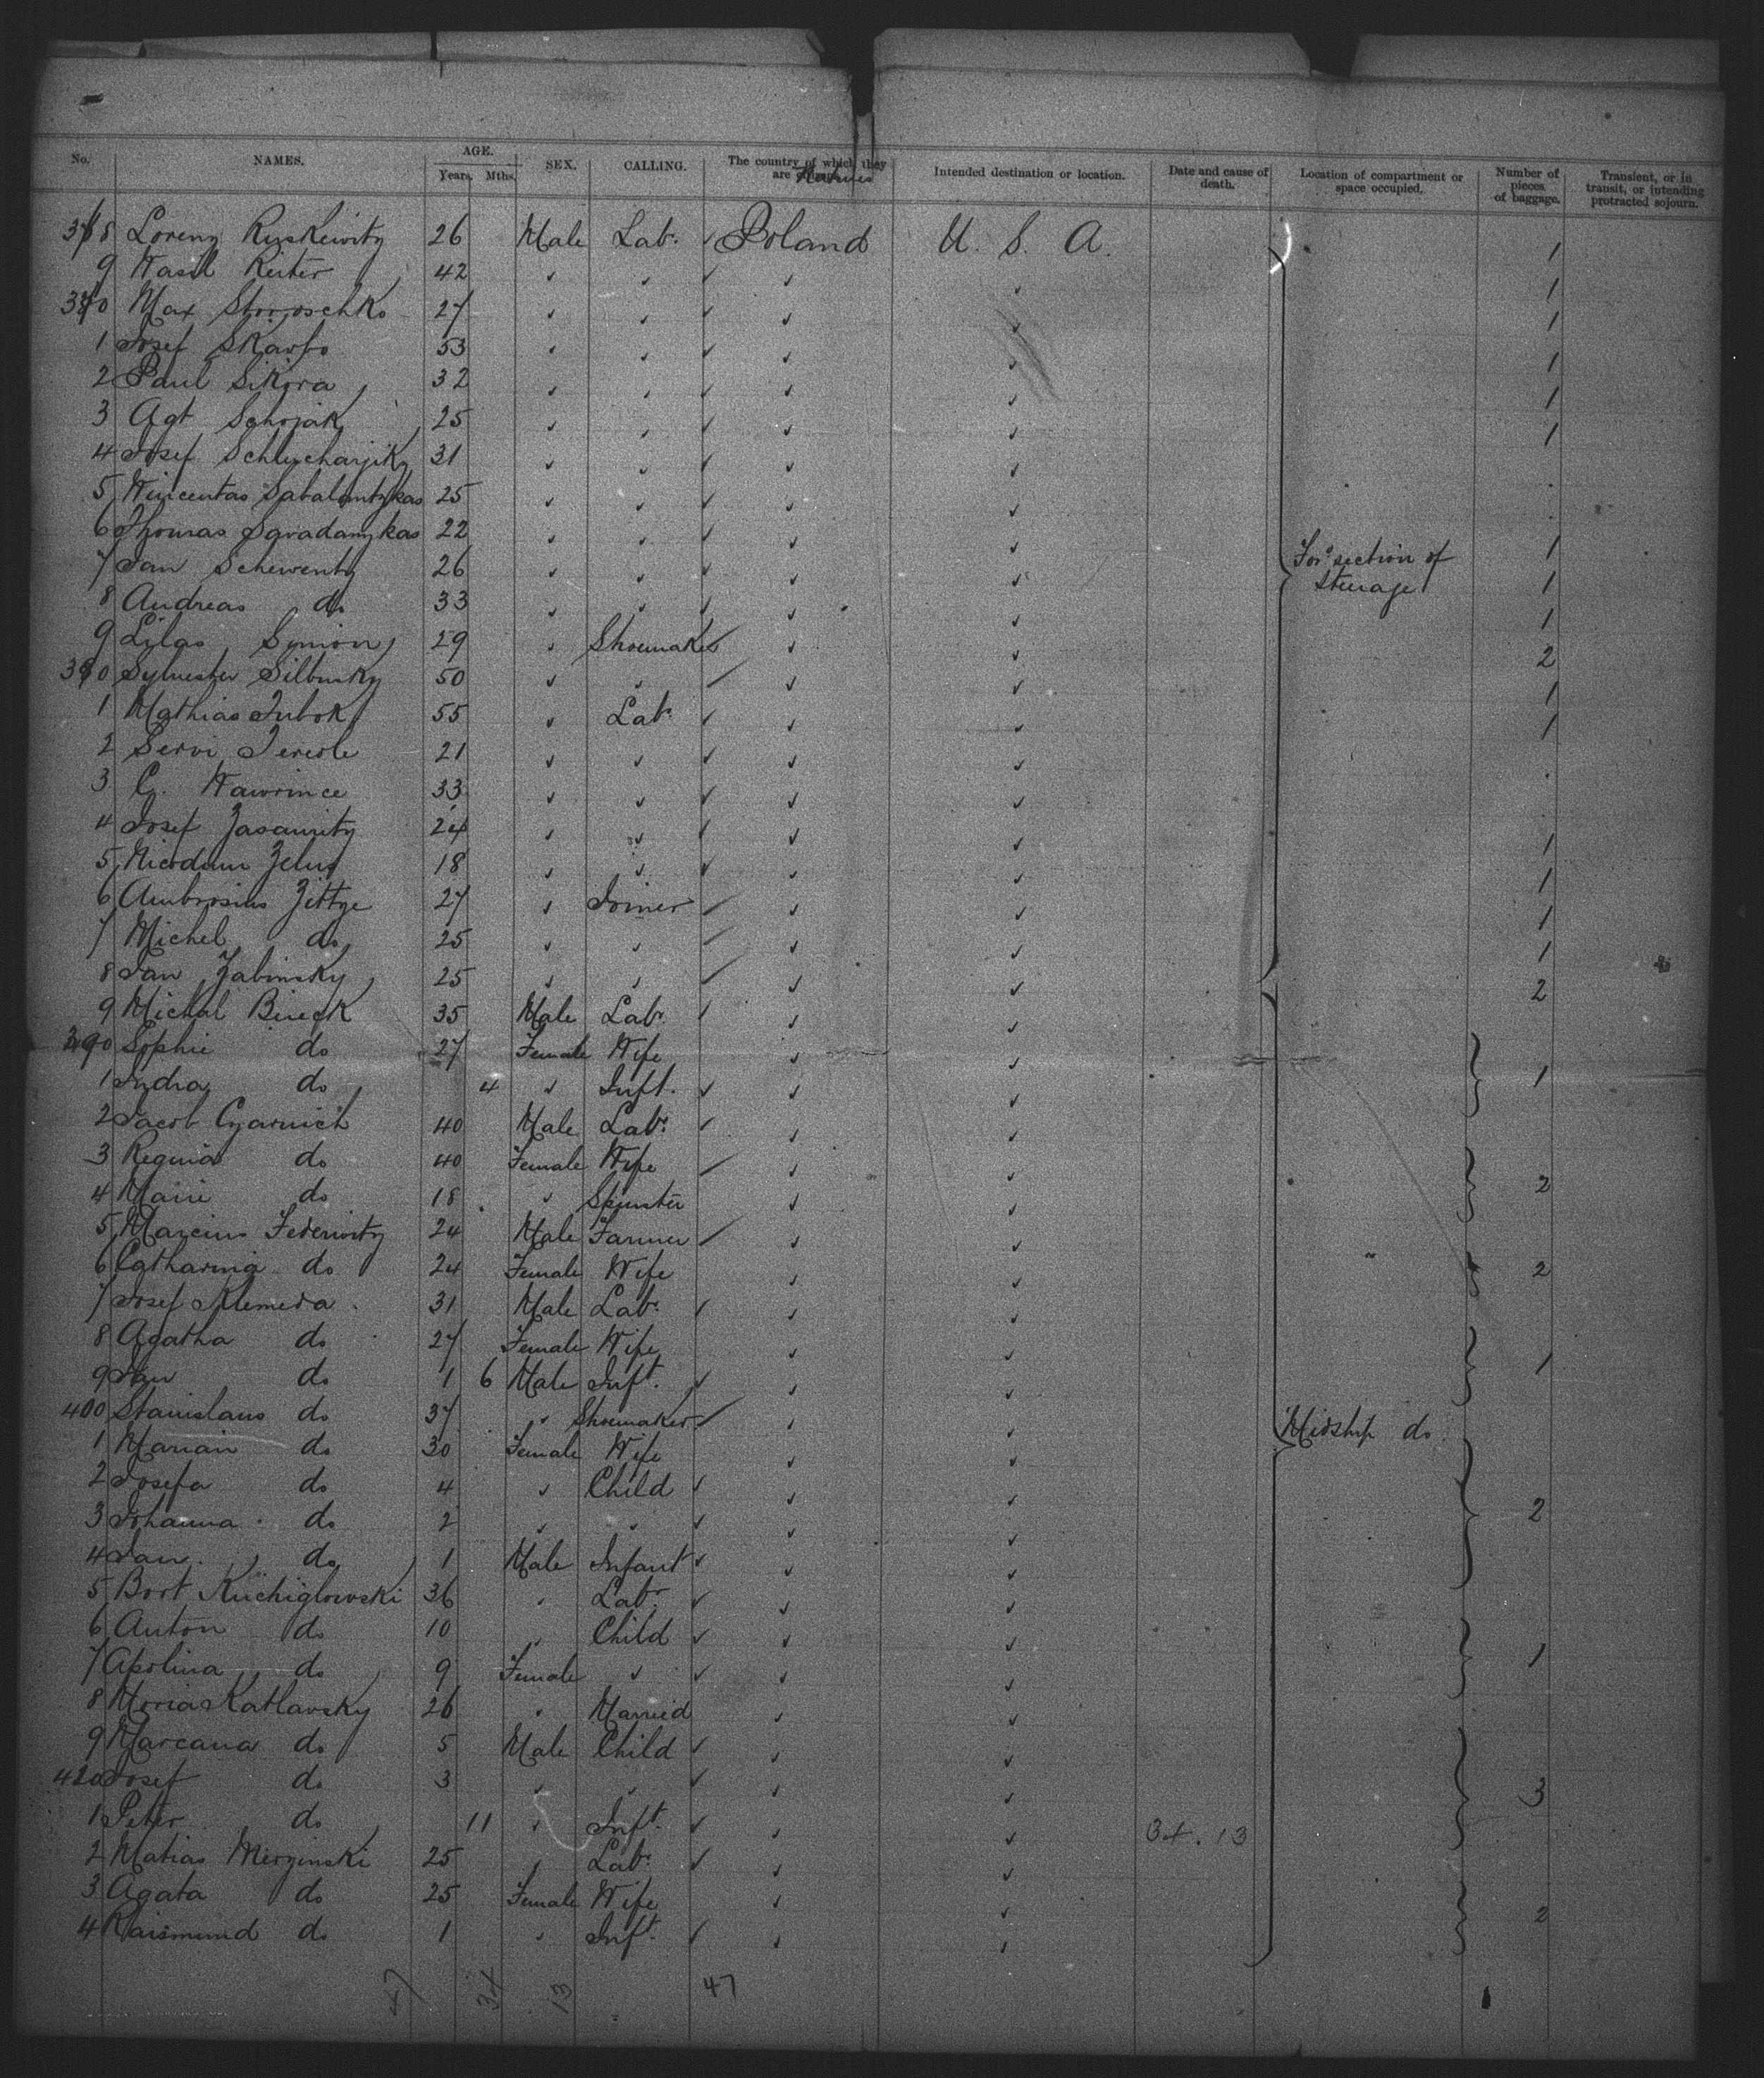 No. NAMES. AGE. SEX. CALLING. The country of which they Intended destination or location. Date and cause of Location of compartment or Number of Transient, or in
Years. Mths. are Natives death. space occupied. pieces transit, or intending
of baggage. protracted sojourn.
8 Lorenz Ryskewitz 26 Male Lab. ✓ Poland U. S. A. 1
9 Wasil Reiter 42 ✓ ✓ ✓ ✓ ✓ 1
Max Storoschko 27 ✓ ✓ ✓ ✓ ✓ 1
1 Josef Skarbo 53 ✓ ✓ ✓ ✓ ✓ 1
2 Paul Sikora 32 ✓ ✓ ✓ ✓ ✓ 1
3 Agt Schojak 25 ✓ ✓ ✓ ✓ ✓ 1
4 Josef 31 ✓ ✓ ✓ ✓ ✓
5 Wincentas 25 ✓ ✓ ✓ ✓ ✓
6 Thomas 22 ✓ ✓ ✓ ✓ ✓ 1
7 Jan Schewentz 26 ✓ ✓ ✓ ✓ ✓ For'd section of 1
8 Andreas do 33 ✓ ✓ ✓ ✓ ✓ Steerage 1
9 Lilas Symon 29 ✓ Shoemaker ✓ ✓ 2
Sylvester Silbursky 50 ✓ ✓ ✓ ✓ 1
1 Mathias Tubok 55 ✓ Lab. ✓ ✓ ✓ 1
2 Servi Tereste 21 ✓ ✓ ✓ ✓ ✓
3 G. Wawrince 33 ✓ ✓ ✓ ✓ ✓
4 Josef 24 ✓ ✓ ✓ ✓ ✓ 1
5 Nicodem Zelus 18 ✓ ✓ ✓ ✓ ✓ 1
6 Ambrosius Zittge 27 ✓ Joiner ✓ ✓ 1
7 Michel do 25 ✓ ✓ ✓ ✓ 1
8 Jan Zabinsky 25 ✓ ✓ ✓ ✓ 2
9 Michal Bireck 35 Male Lab. ✓ ✓ ✓
390 Sophie do 27 Female Wife ✓ ✓
1 Indra do 4 ✓ Inft. ✓ ✓ ✓ 1
2 Jacob Czarnich 40 Male Lab. ✓ ✓ ✓
3 Regina do 40 Female Wife ✓ ✓
4 Marie do 18 ✓ Spinster ✓ ✓ 2
5 Marcius Federivitz 24 Male Farmer ✓ ✓
6 Catharina do 24 Female Wife ✓ ✓ " 2
7 Josef Klemeda 31 Male Lab. ✓ ✓ ✓
8 Agatha do 27 Female Wife ✓ ✓ 1
9 Jan do 1 6 Male Inft. ✓ ✓ ✓
400 Stanislaus do 37 ✓ Shoemaker ✓ ✓ Midship do
1 Marian do 30 Female Wife ✓ ✓
2 Josefa do 4 ✓ Child ✓ ✓ ✓
3 Johanna do 2 ✓ ✓ ✓ ✓ ✓ 2
4 Jan do 1 Male Infant ✓ ✓ ✓
5 Bort Kuchiglowski 36 ✓ Lab. ✓ ✓ ✓
6 Anton do 10 ✓ Child ✓ ✓ ✓
7 Apolina do 9 Female ✓ ✓ ✓ ✓ 1
8 Moria Katlavsky 26 ✓ Married ✓ ✓
9 Marcana do 5 Male Child ✓ ✓ ✓
Josef do 3 ✓ ✓ ✓ ✓ ✓ 3
1 Peter do 11 ✓ Inft. ✓ ✓ ✓ 34. 13
2 Matias Mierzinski 25 ✓ Lab. ✓ ✓ ✓
3 Agata do 25 Female Wife ✓ ✓ 2
4 Raismund do 1 ✓ Inft. ✓ ✓ ✓
47 34 13 47